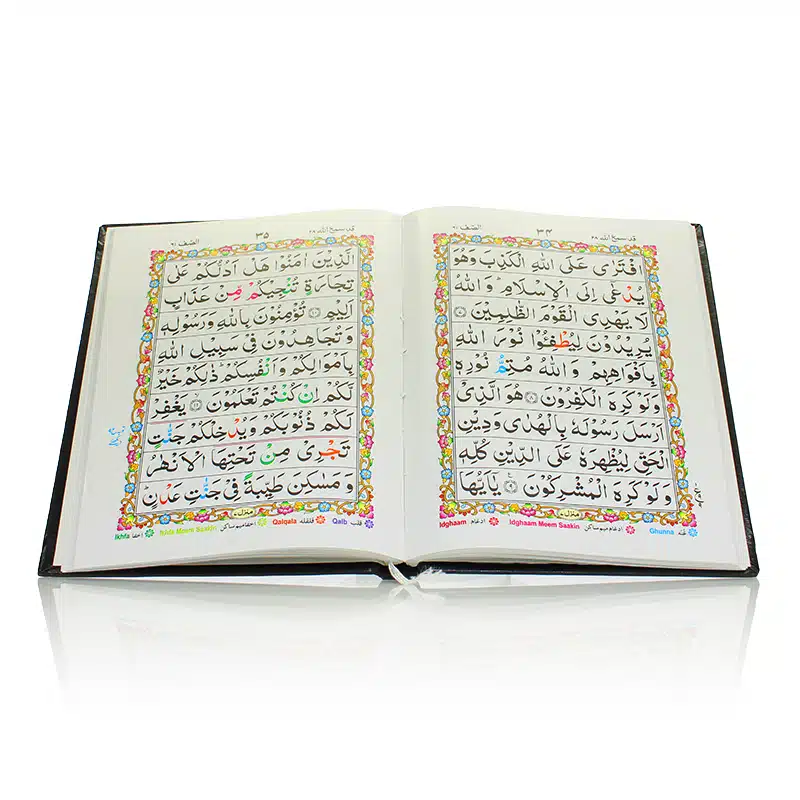 قد سمع الله ٢٨ ٣٤ الصّف ٦١
افْتَرٰى عَلَى اللّٰهِ الْكَذِبَ وَهُوَ
يُدْعٰۤى اِلَى الْاِسْلَامِ ؕ وَاللّٰهُ
لَا يَهْدِى الْقَوْمَ الظّٰلِمِيْنَ ۟
يُرِيْدُوْنَ لِيُطْفِـُٔوْا نُوْرَ اللّٰهِ
بِاَفْوَاهِهِمْ وَاللّٰهُ مُتِمُّ نُوْرِهٖ
وَلَوْ كَرِهَ الْكٰفِرُوْنَ ۟ هُوَ الَّذِىْۤ
اَرْسَلَ رَسُوْلَهٗ بِالْهُدٰى وَدِيْنِ
الْحَقِّ لِيُظْهِرَهٗ عَلَى الدِّيْنِ كُلِّهٖ
وَلَوْ كَرِهَ الْمُشْرِكُوْنَ ۟ يٰۤاَيُّهَا
منزل ٧
Idghaam ادغام Idghaam Meem Saakin ادغام میم ساکن Ghunna غنہ
قد سمع الله ٢٨ ٣٥ الصّف ٦١
الَّذِيْنَ اٰمَنُوْا هَلْ اَدُلُّكُمْ عَلٰى
تِجَارَةٍ تُنْجِيْكُمْ مِّنْ عَذَابٍ
اَلِيْمٍ ۟ تُؤْمِنُوْنَ بِاللّٰهِ وَرَسُوْلِهٖ
وَتُجَاهِدُوْنَ فِىْ سَبِيْلِ اللّٰهِ
بِاَمْوَالِكُمْ وَاَنْفُسِكُمْ ؕ ذٰلِكُمْ خَيْرٌ
لَّكُمْ اِنْ كُنْتُمْ تَعْلَمُوْنَ ۟ يَغْفِرْ
لَكُمْ ذُنُوْبَكُمْ وَيُدْخِلْكُمْ جَنّٰتٍ
تَجْرِىْ مِنْ تَحْتِهَا الْاَنْهٰرُ
وَمَسٰكِنَ طَيِّبَةً فِىْ جَنّٰتِ عَدْنٍ
منزل ٧
Ikhfa اخفا Ikhfa Meem Saakin اخفا میم ساکن Qalqala قلقلہ Qalb قلب